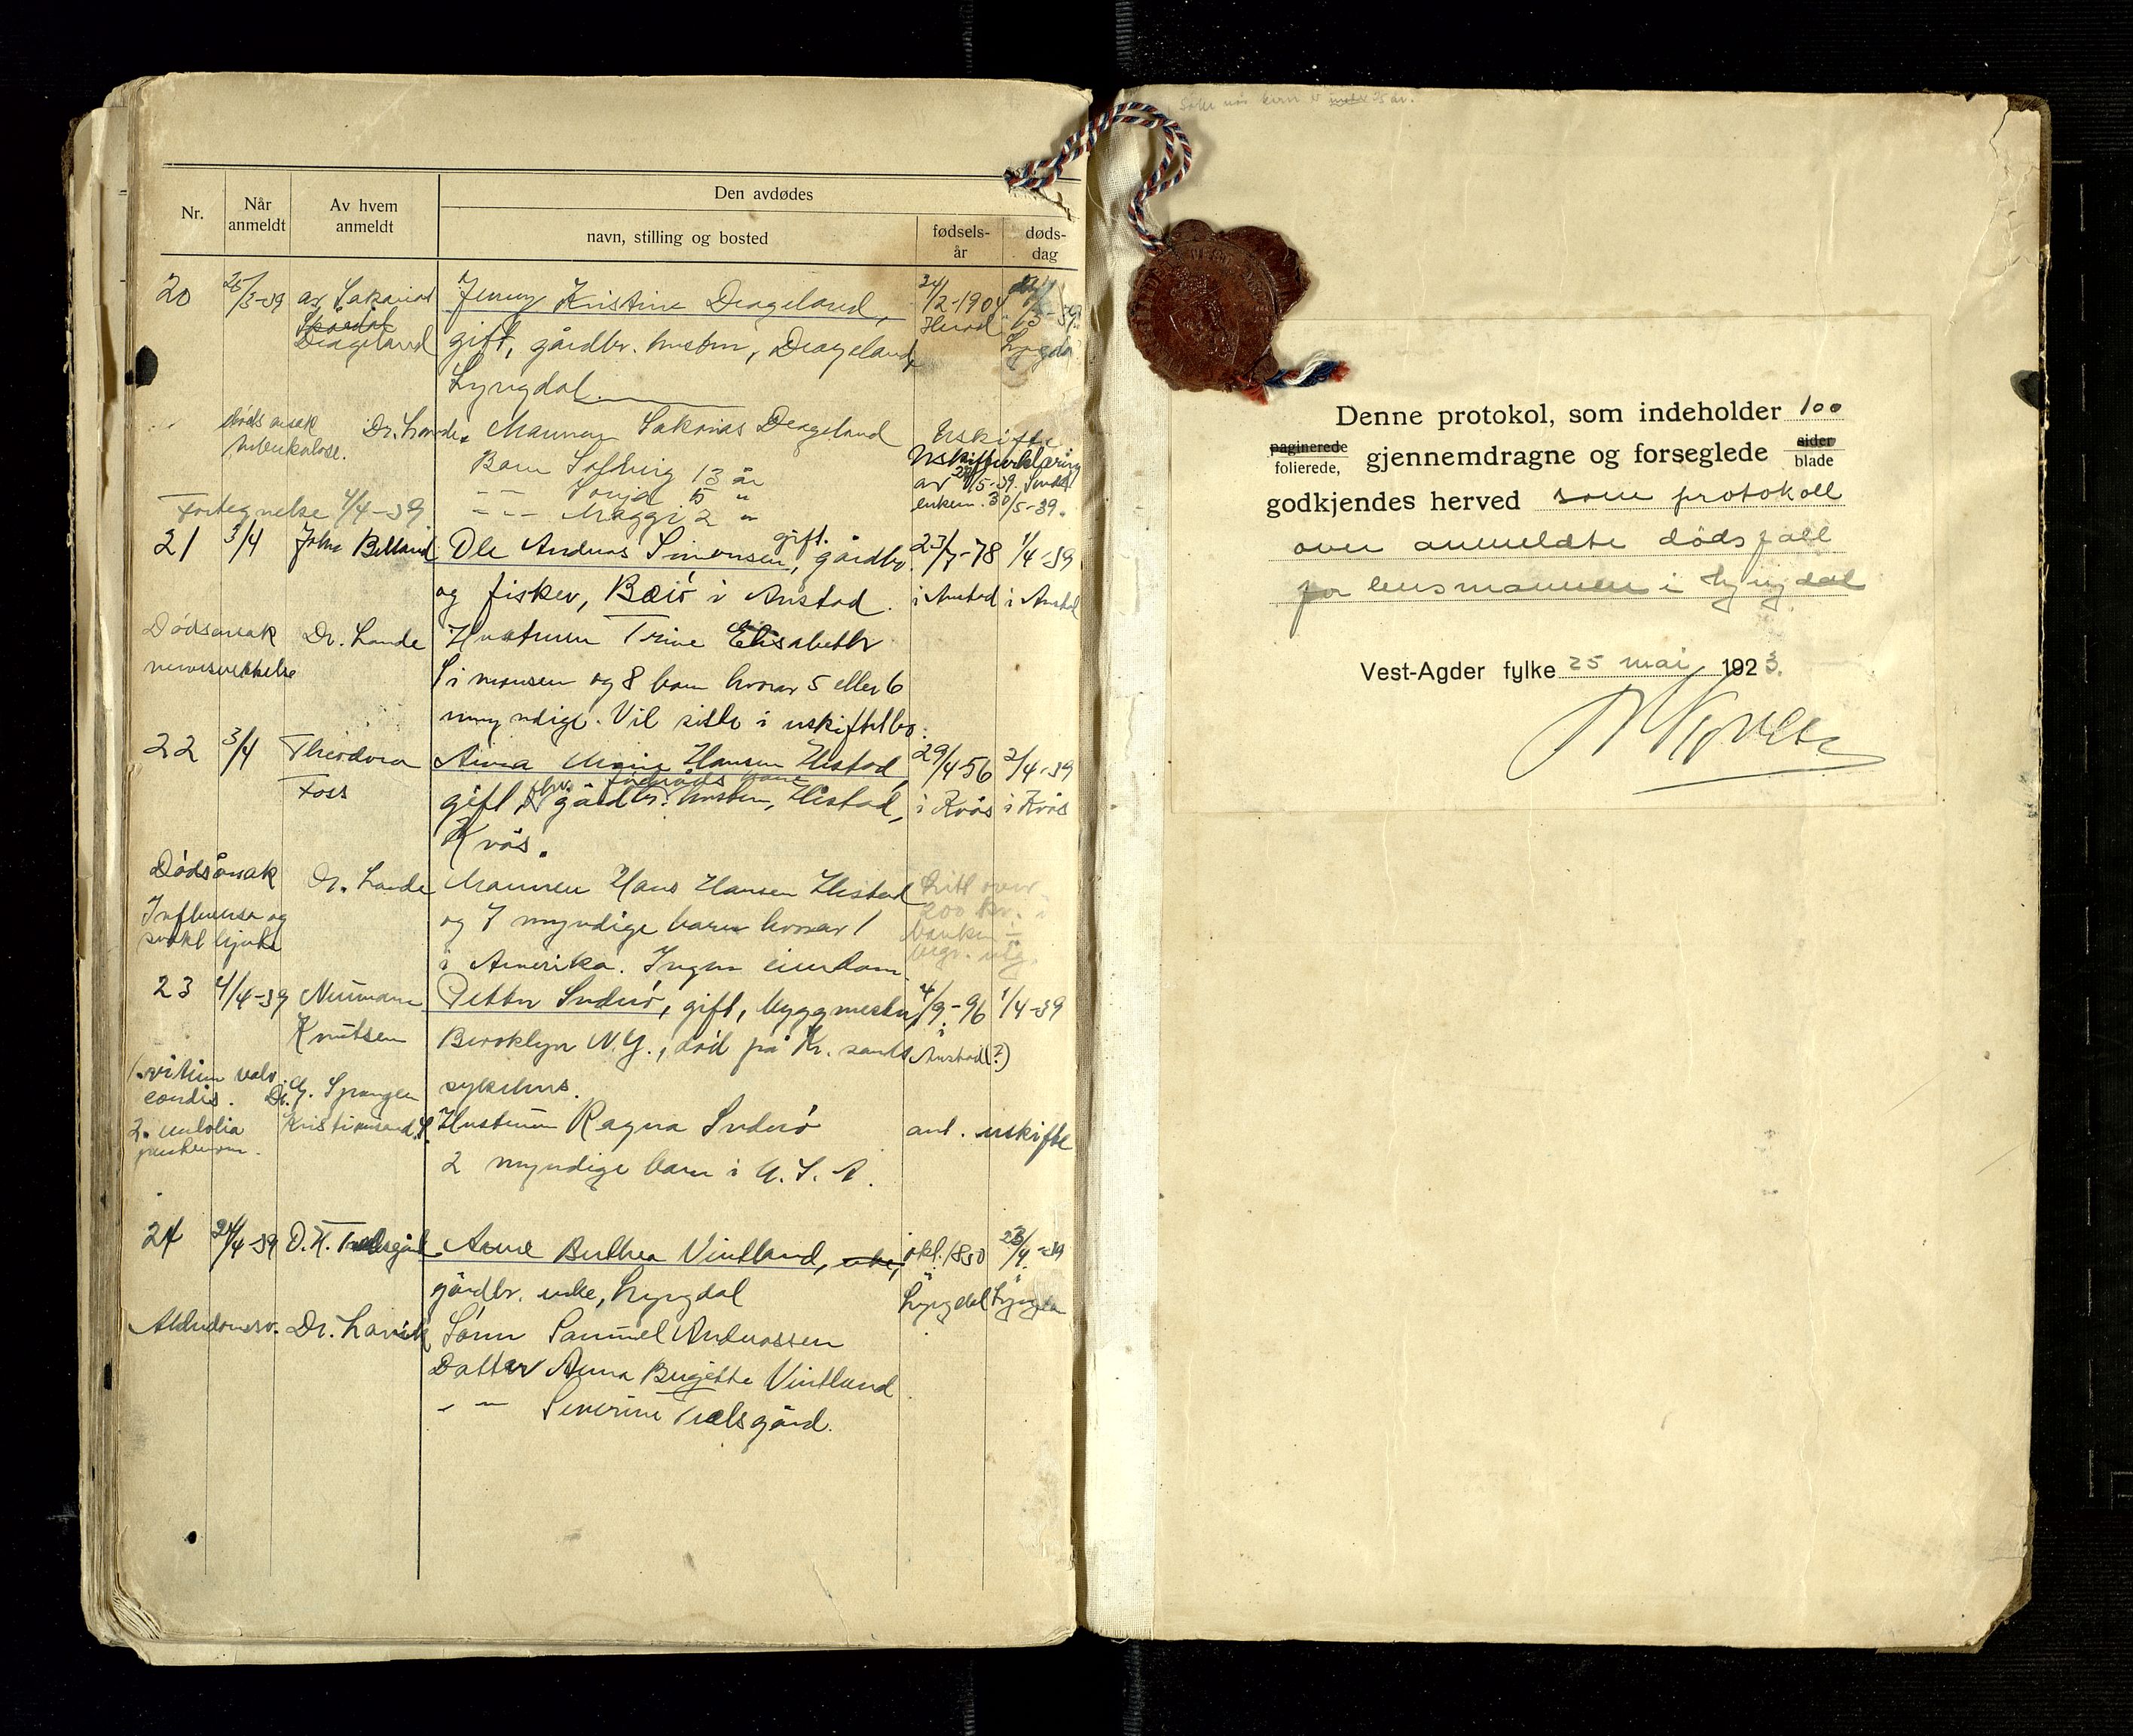 Nr.
Når anmeldt
Av hvem anmeldt
Den avdødes
navn, stilling og bosted
fødsels-år
døds-dag
20 25/3-39 av Sakarias Jenny Kristine Drageland, 24/2-1904
Drageland gift, gårdbr. hustru, Drageland, Herad Lyngdal
Lyngdal.
dødsårsak Dr. Lande. Mannen Sakarias Drageland Uskifte
tuberkulose. Barn Solveig 13 år Uskifteerklæring
-- Sonja 5 " av 5-39. Sendt
Fortegnelse 4/4-39 --- Maggi 2 " 30/5-39.
21 3/4 John Belland Ole Andreas Simonsen, gift. gårdbr. 23/7-78 1/4-39
og fisker, Bæiø i Austad. i Austad i Austad
Dødsårsak Dr. Lande Hustruen Trine Elisabeth
Simonsen og 8 barn hvorav 5 eller 6
umyndige. Vil sitte i uskiftet bo.
22 3/4 Theodora Anna Marie Hansen Histad, 29/4-56 2/4-39
Foss gift, gårdbr. hustru, Histad, i Kvås i Kvås
Kvås.
Dødsårsak Dr. Lande Mannen Hans Hansen Histad Litt over
Influensa og og 7 myndige barn hvorav 1 200 kr. i
svakt hjerte i Amerika. Ingen eiendom. banken
23 4/4-39 Neumann Petter Suderø, gift, byggmester, 4/9-96 1/4-39
Knutsen Brooklyn N.Y., død på Kr. sands i Austad (?)
1. vitium valv. sykehus.
cordis. Dr. Spangen
2. embolia Kristiansand S. Hustruen Ragna Suderø anl. uskifte
2 myndige barn i U.S.A.
24 24/4-39 O. H. Trælsgård Anne Berthea Vintland, enke, okt. 1850 23/4-39
gårdbr. enke, Lyngdal Lyngdal Lyngdal
Alderdomssv. Dr. Lavik Sønn Samuel Andreassen
Datter Anna Birgitte Vintland
- - Severine Trælsgård.
Denne protokol, som indeholder 100
paginerede folierede, gjennemdragne og forseglede sider blade
godkjendes herved som protokoll
over anmeldte dødsfall
for lensmannen i Lyngdal
Vest-Agder fylke 25 mai 1923.